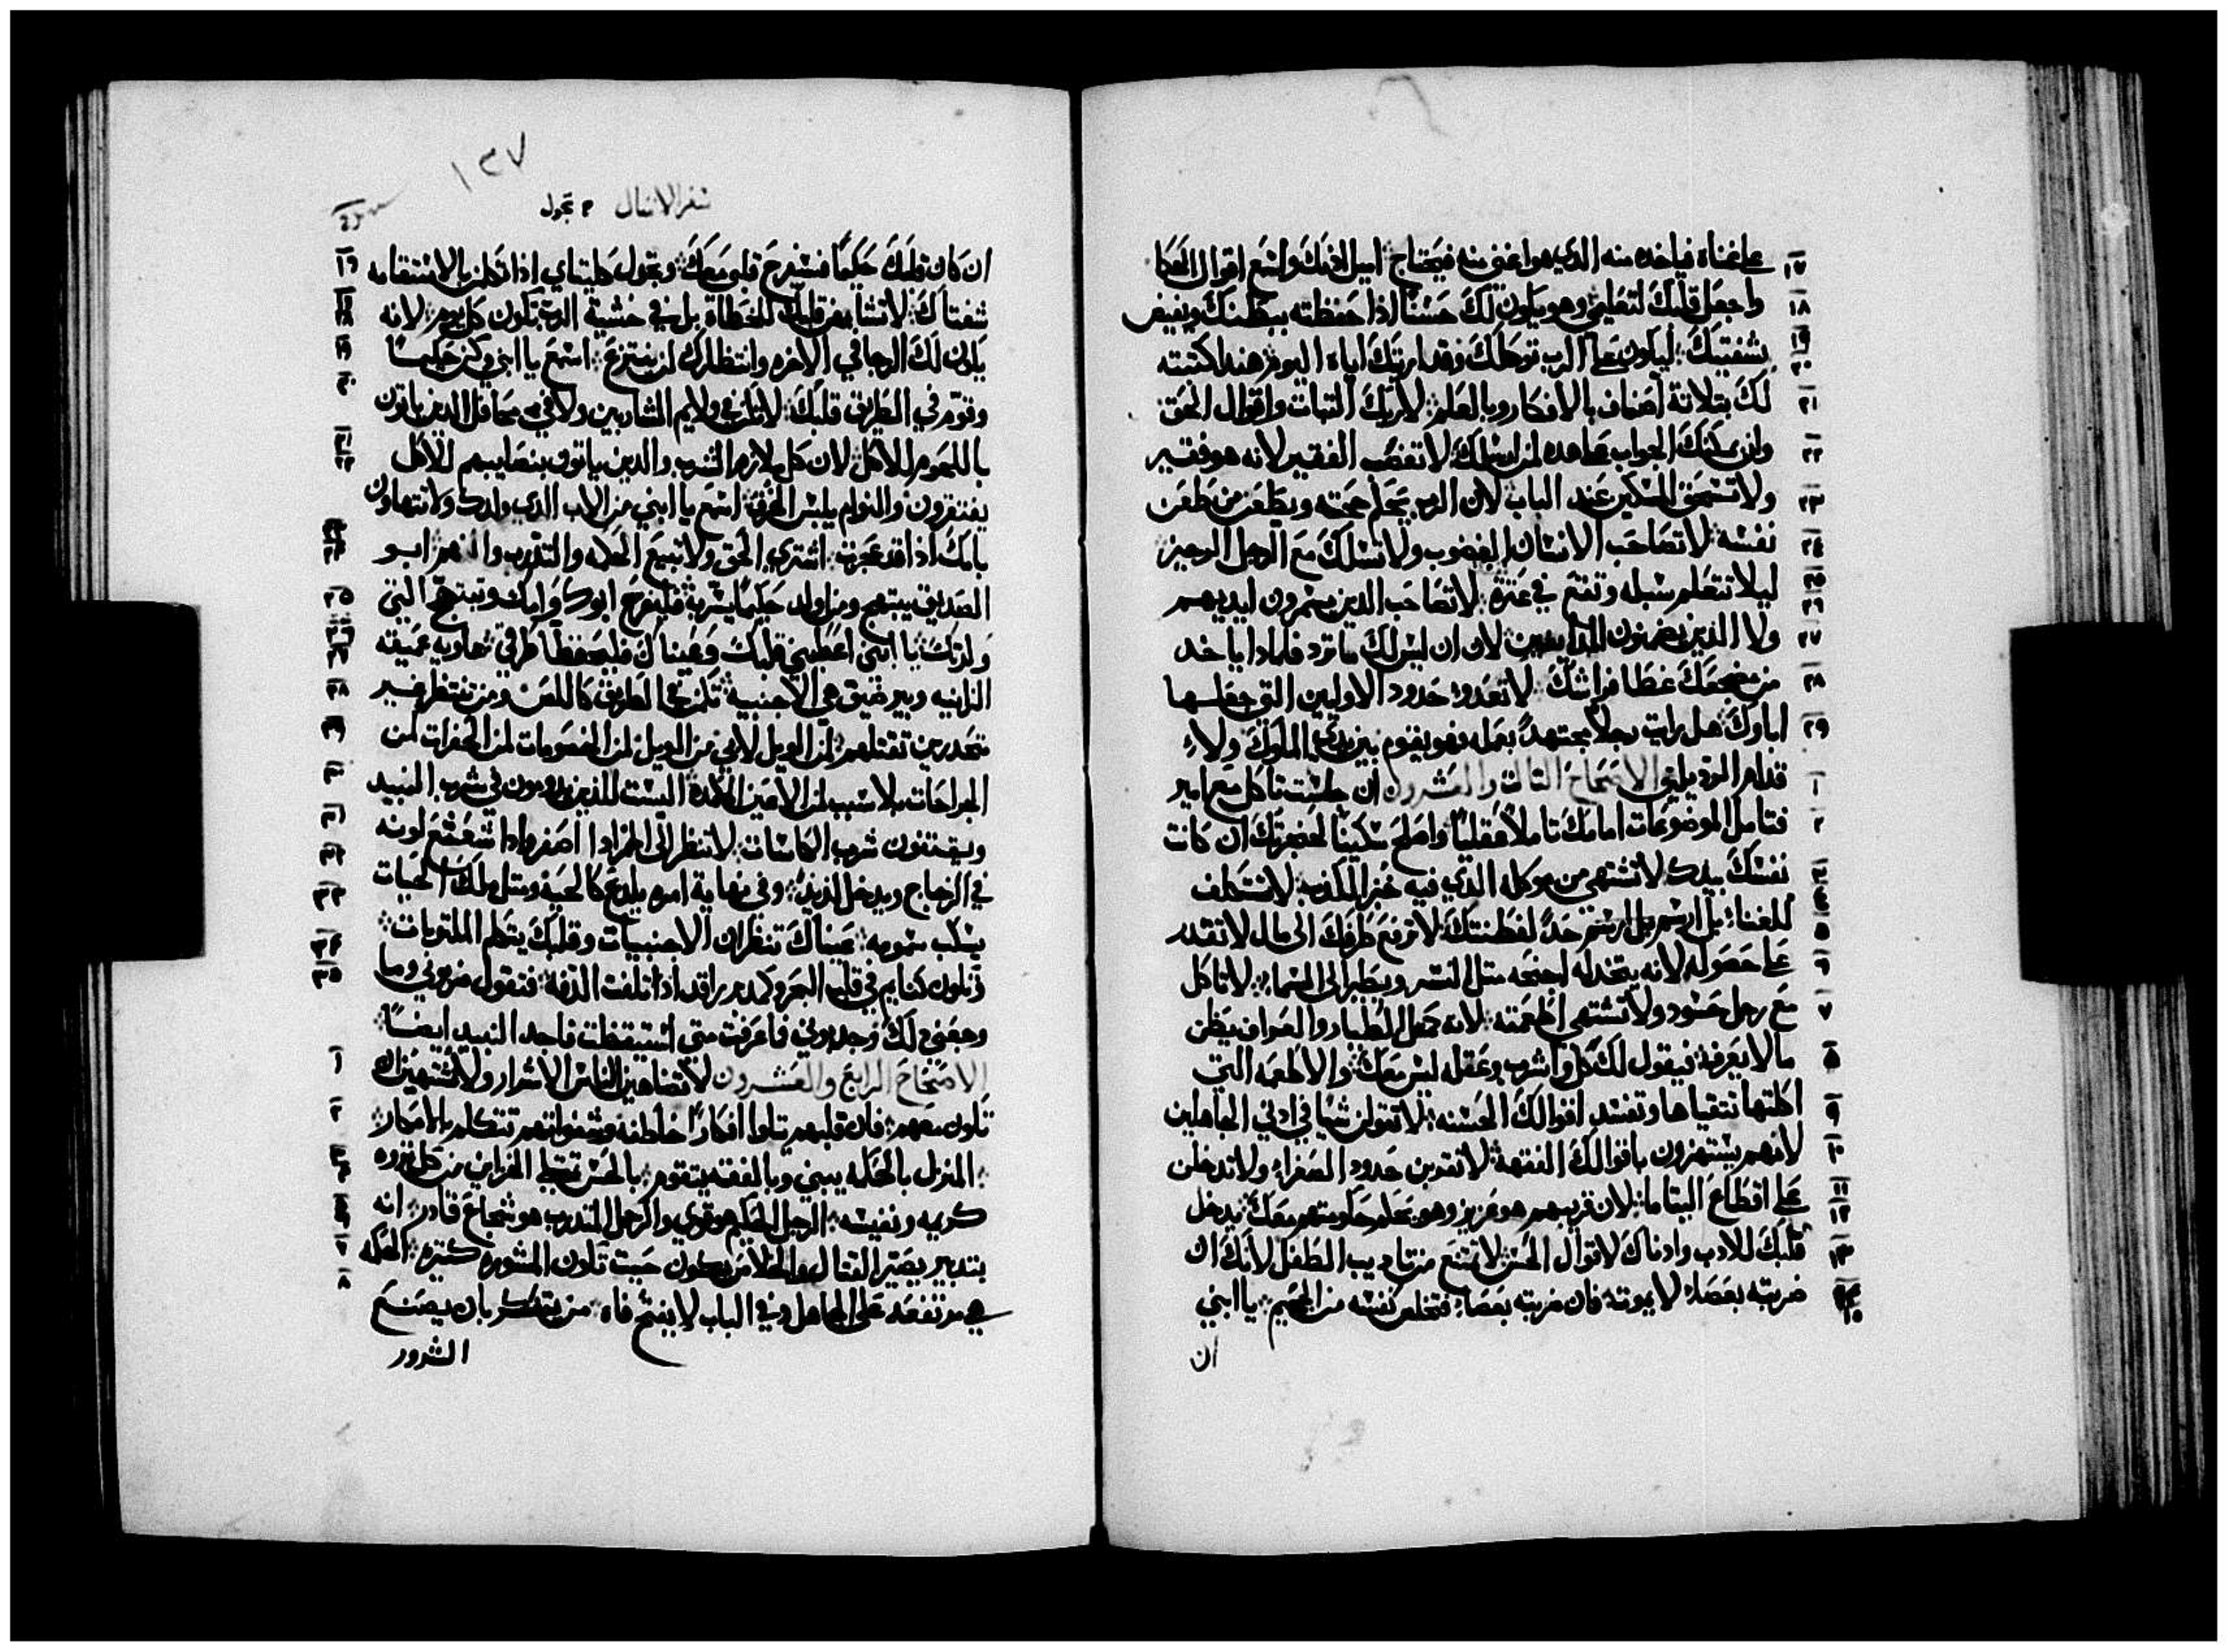 على غناه فياخده منه الدي هو اغنى منه فيحتاج اميل ادنك واسمع اقوال الحكما
واجعل قلبك لتعليمي وهو يكون لك حسنًا اذا حفظته ببطنك ويفيض
بشفتيك ليكون على الرب توكلك وقد اريتك اياه اليوم هنداكتبته
لك بتلاتة اصناف بالافكار وبالعلم لاريك التبات واقوال الحق
وان يمكنك الجواب بهاهده لمن ارسلك لا تغصب الفقير لانه هو فقير
ولا تسحق المسكين عند الباب لان الرب يحكم حجته ويطعن من طعن
نفسه لا تصاحب الانسان الغضوب ولا تسلك مع الرجل الرجيز
ليلا تتعلم سبله وتقع في عترة لا تصاحب الدين يسمرون ايديهم
ولا الدين يضمنون المداينين لان ان ليس لك ما ترد فلمادا ياخد
من مضجعك غطا فراشك لا تعدوا حدود الاولين التي جعلها
اباوك هل رايت رجلاً مجتهدًا بعمله فهو يقوم بين يدي الملوك ولا
قدام الردي يلقى الاصحاح التالت والعشرون ان جلست تاكل مع امير
فتامل الموضوعات امامك تاملاً عقليًا واصلح سكينًا لحنجرتك ان كانت
نفسك بيدك لا تشتهي من موكله الدي فيه خبز الكدب لا تتكلف
للغنا بل ارسم بل ارسم حدًا لفطنتك لا ترفع طرفك الى مال لا تقدر
على حصوله لانه يتخد له اجنحه متل النسر ويطير الى السما لا تاكل
مع رجل حسود ولا تشتهي اطعمته لانه كمتل الطيار والعراف يظن
ما لا يعرفه فيقول لك كل واشرب وعقله ليس معك والاطعمه التي
اكلتها تتقياها وتفسد اقوالك الحسنه لا تقولن شيا في ادني الجاهلين
لانهم يستهزون باقوالك الفقهة لا تقربن حدود الصغار ولا تدخلن
على اقطاع اليتاما لان قريبهم هو عزيز وهو يحكم حكومتهم معك يدخل
قلبك للادب وادناك لاقوال الحس لا تمتنع من تاديب الطفل لانك ان
ضربته بعصا لا يموت فان ضربته بعصا فتخلص نفسه من الجحيم يا ابني
ان
١٣٧
سفر الامتال
ان كان قلبك حكيمًا فسيفرح قلبي معك وتجدل كليتاي ادا تكلمت بالاستقامه
شفتاك لا تشا بغر قلبك للخطاة بل في خشية الرب تكون كل يوم لانه
يكون لك الرجا في الاخره وانتظارك لن ينتزع اسمع يا ابني وكن حكيمًا
وقوم في الطريق قلبك لا تكن في ولايم الشاربين ولا في محافل الدين ياتون
باللحوم للاكل لان كل ملازم الشرب والدين ياتون بنصايبهم للاكل
يفتقرون والنوام يلبس الخرق اسمع يا ابني من الاب الدي ولدك ولا تتهاون
بامك ادا قد عجزت اشتري الحق ولا تبيع الحكمه والتدرب والفهم ابو
الصديق يبتهج ومن اولد حكيمًا يسر به فليفرح ابوك وامك وتبتهج التي
ولدتك يا ابني اعطيني قلبك وعيناك فليحفظا طرقي هاويه عميقه
الزانيه وبير ضيق هي الاجنبيه تكمن في الطريق كاللص ومن تنتظر غير
متحدرين تقتلهم لمن الويل لابي من الويل لمن الخصومات لمن الحفرات لمن
الجراحات بلا سبب لمن الاعين الكمدة اليست للدين يدومون في شرب النبيد
ويفتنون شرب الكاسات لا تنظر الى الخمر ادا اصفر وادا شعشع لونه
في الزجاج ويدخل لديدًا وفي نهاية امره يلدع كالحيه ومتل ملك الحيات
يسكب سمومه عيناك تنظران الاجنبيات وقلبك يتكلم الملتويات
تكون كنايم في قلب البحر وكمدبر راقد ادا تلفت الدفة فتقول ضربوني وما
وجعني لك وجدبوني فما عرفت متى استيقظت فاجد النبيد ايضًا
الاصحاح الرابع والعشرون لا تضاهين الناس الاشرار ولا تشتهين ان
تكون معهم فان قلبهم يتلوا افكارًا خاطفه وشفواتهم تتكلم بالامكار
المنزل بالحكمه يبنى وبالفقه يتقوم بالحس تمتلي الخزاين من كل تروه
كريمه ونفيسه الرجل الحكيم هو قوي والرجل المتدرب هو شجاع قادر انه
بتدبير يصير القتال والخلاص يكون حيت تكون المشوره كتيره الحكمه
هي مرتفعه على الجاهل وفي الباب لا يفتح فاه من يفتكر بان يصنع
الشرور